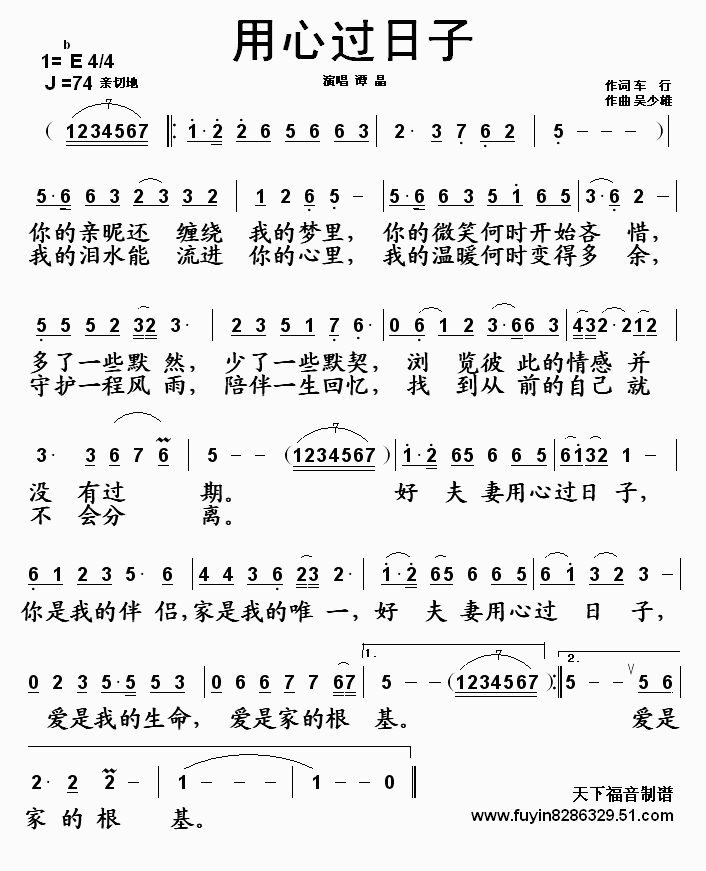 用心过日子
1= ♭E 4/4
J =74 亲切地
演唱 谭 晶
作词 车 行
作曲 吴少雄
( 1234567 ‖: 1·2 2 6 5 6 6 3 | 2· 3 7 6 2 | 5 - - - )|
5·6 6 3 2 3 3 2 | 1 2 6 5 - | 5·6 6 3 5 1 6 5 | 3·6 2 -
你的亲昵还 缠绕 我的梦里, 你的微笑何时开始吝 惜,
我的泪水能 流进 你的心里, 我的温暖何时变得多 余,
5 5 5 2 32 3· | 2 3 5 1 7 6· | 0 6 1 2 3·6 6 3 | 432 212
多了一些默 然, 少了一些默契, 浏 览彼 此的情感 并
守护一程风 雨, 陪伴一生回忆, 找 到从 前的自己 就
3· 3 6 7 6 | 5 - - (1234567) | 1·2 65 6 6 5 | 6132 1 - |
没 有过 期。 好 夫 妻用心过日 子,
不 会分 离。
6 1 2 3 5· 6 | 4 4 3 6 23 2· | 1·2 65 6 6 5 | 6 1 3 2 3 |
你是我的伴 侣,家是我的唯 一, 好 夫 妻用心过 日 子,
1. 2.
0 2 3 5·5 5 3 | 0 6 6 7 7 67 | 5 - - (1234567) :‖ 5 - - 5 6
爱是我的生命, 爱是家的根 基。 爱是
2· 2 2 - | 1 - - - | 1 - - 0 ‖
家 的 根 基。
天下福音制谱
www.fuyin8286329.51.com